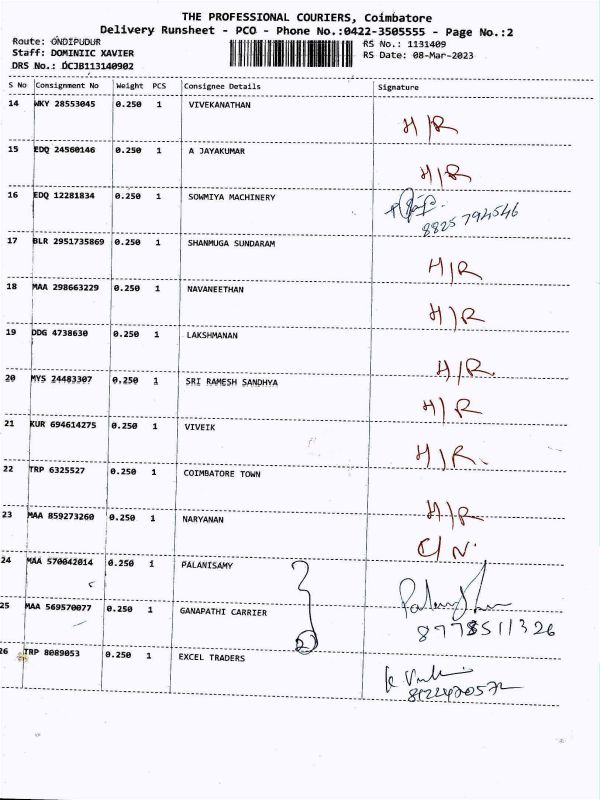 THE PROFESSIONAL COURIERS, Coimbatore
Delivery Runsheet - PCO - Phone No.:0422-3505555 - Page No.:2
Route: ONDIPUDUR
RS No.: 1131409
Staff: DOMINIIC XAVIER
RS Date: 08-Mar-2023
DRS No.: DCJB113140902
S No Consignment No Weight PCS Consignee Details Signature
14 WKY 28553045 0.250 1 VIVEKANATHAN
H/R
15 EDQ 24560146 0.250 1 A JAYAKUMAR
H/R
16 EDQ 12281834 0.250 1 SOWMIYA MACHINERY
8825794546
17 BLR 2951735869 0.250 1 SHANMUGA SUNDARAM
H/R
18 MAA 298663229 0.250 1 NAVANEETHAN
H/R
19 DDG 4738630 0.250 1 LAKSHMANAN
H/R
20 MYS 24483307 0.250 1 SRI RAMESH SANDHYA
H/R
21 KUR 694614275 0.250 1 VIVEIK
H/R.
22 TRP 6325527 0.250 1 COIMBATORE TOWN
H/R
23 MAA 859273260 0.250 1 NARYANAN
C/N.
24 MAA 570042014 0.250 1 PALANISAMY
25 MAA 569570077 0.250 1 GANAPATHI CARRIER
8978511326
2
26 TRP 8089053 0.250 1 EXCEL TRADERS
8122420572